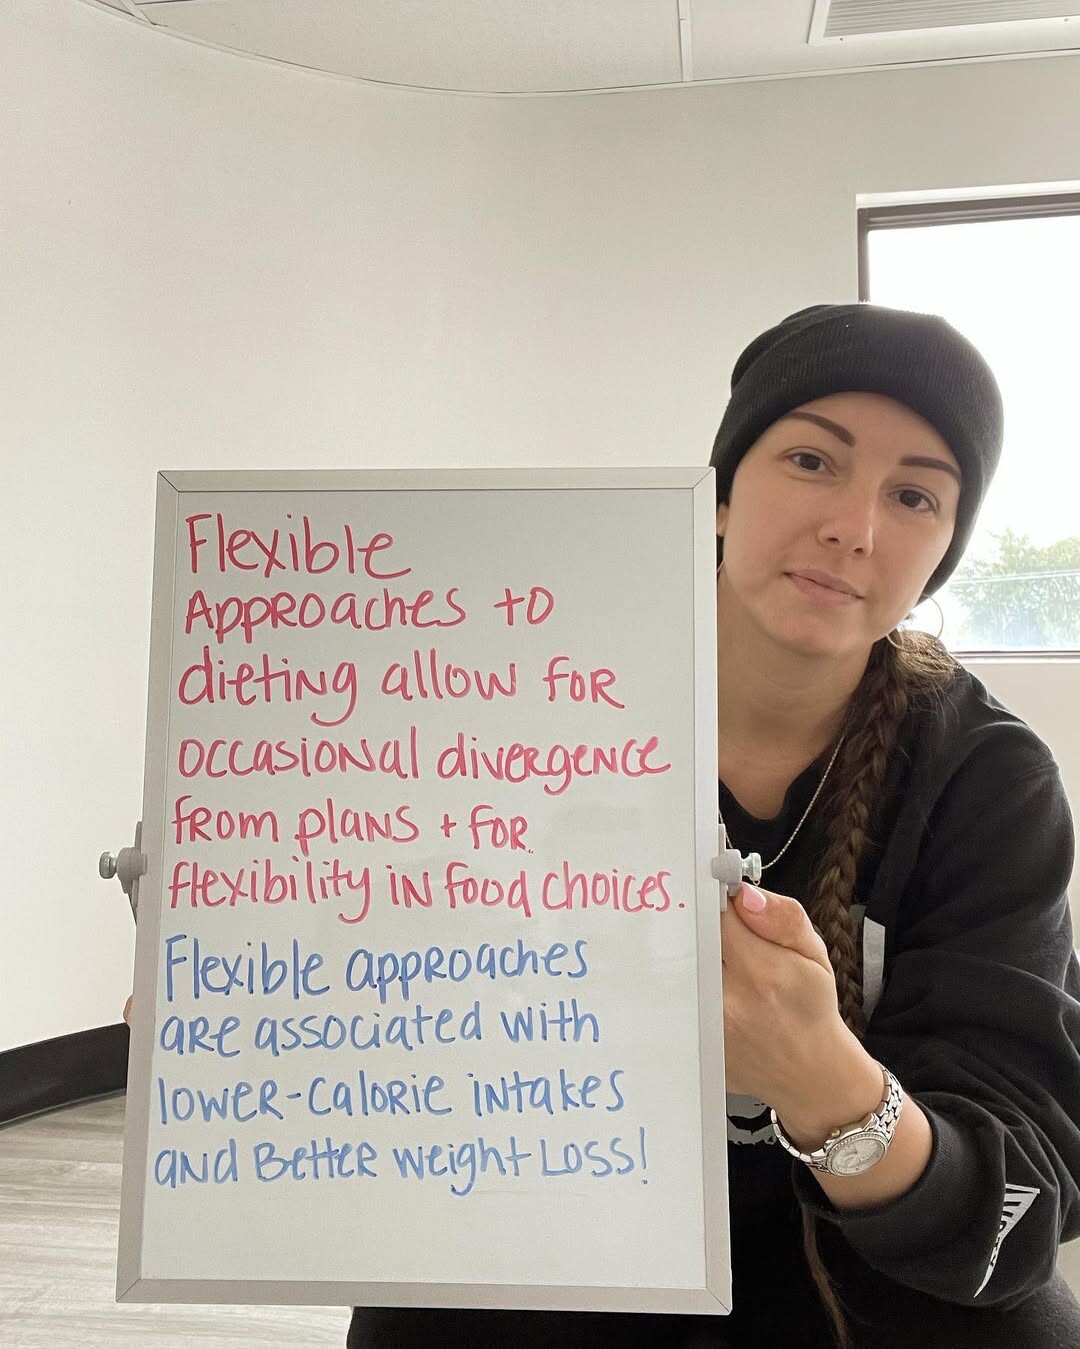 Flexible
Approaches to
dieting allow for
occasional divergence
from plans + for
flexibility in food choices.
Flexible approaches
are associated with
lower-calorie intakes
and Better weight Loss!